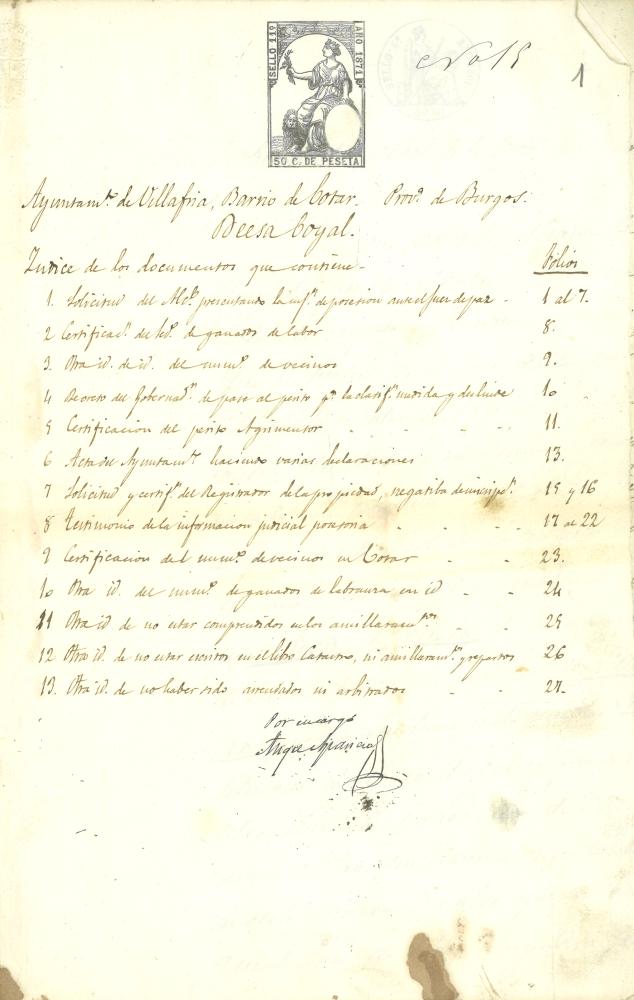 SELLO 11º AÑO 1871
50 C. DE PESETA
No 15
1
Ayuntamto. de Villafria, Barrio de Cotar. Prova. de Burgos.
Deesa boyal.
Indice de los documentos que contiene. Folios
1. Solicitud del Alce. presentando la infn. de posesion ante el Juez de paz. 1 al 7.
2 Certificacn. del de ganados de labor 8.
3. Otra id. de id. del numo. de vecinos 9.
4 Decreto del Gobernador. de pase al perito pa. la clasifn. medida y deslinde 10
5 Certificacion del perito Agrimensor 11.
6 Acta del Ayuntamto. haciendo varias declaraciones 13.
7 Solicitud y certifn. del Registrador de la propiedad, negatiba de inscripn. 15 y 16
8 Testimonio de la informacion judicial posesoria 17 al 22
9 Certificacion del numo. de vecinos en Cotar 23.
10 Otra id. del numo. de ganados de labranza en id 24
11 Otra id de no estar comprendidos en los amillaramtos 25
12 Otra id. de no estar escritos en el libro Catastro, ni amillaramtos. y repartos 26
13. Otra id. de no haber sido arrendados ni arbitrados 27.
Por encargo
Aparicio